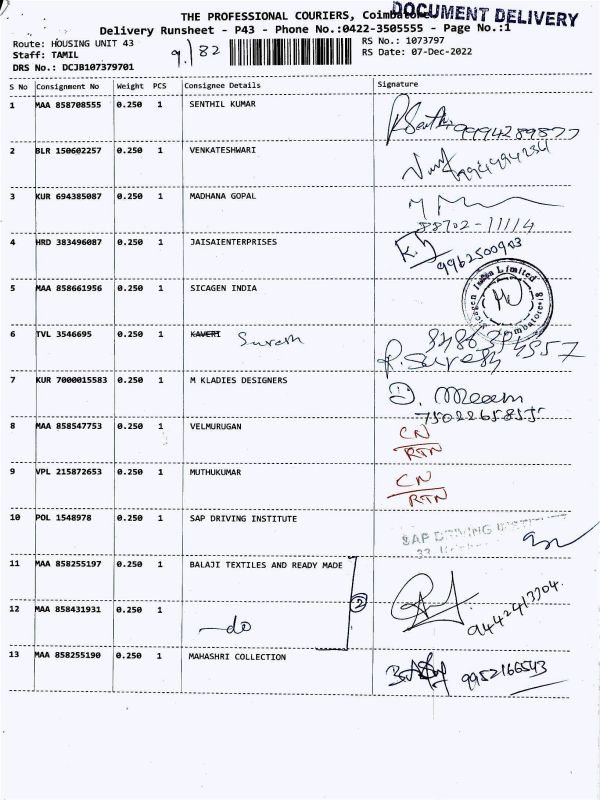 DOCUMENT DELIVERY
THE PROFESSIONAL COURIERS, Coimbatore
Delivery Runsheet - P43 - Phone No.:0422-3505555 - Page No.:1
Route: HOUSING UNIT 43 RS No.: 1073797
Staff: TAMIL 9.) 82 RS Date: 07-Dec-2022
DRS No.: DCJB107379701
S No Consignment No Weight PCS Consignee Details Signature
1 MAA 858708555 0.250 1 SENTHIL KUMAR 9994289877
2 BLR 150602257 0.250 1 VENKATESHWARI
3 KUR 694385087 0.250 1 MADHANA GOPAL
88702-11114
4 HRD 383496087 0.250 1 JAISAIENTERPRISES 9962500903
5 MAA 858661956 0.250 1 SICAGEN INDIA Sicagen India Limited Coimbatore-18
6 TVL 3546695 0.250 1 KAVERI Suresh R. Suresh
7 KUR 7000015583 0.250 1 M KLADIES DESIGNERS D. Meeem
7502265855
8 MAA 858547753 0.250 1 VELMURUGAN CN
RTN
9 VPL 215872653 0.250 1 MUTHUKUMAR CN
RTN
10 POL 1548978 0.250 1 SAP DRIVING INSTITUTE SAP DRIVING INSTITUTE
11 MAA 858255197 0.250 1 BALAJI TEXTILES AND READY MADE
12 MAA 858431931 0.250 1 do 2 9442413304.
13 MAA 858255190 0.250 1 MAHASHRI COLLECTION 9952166543